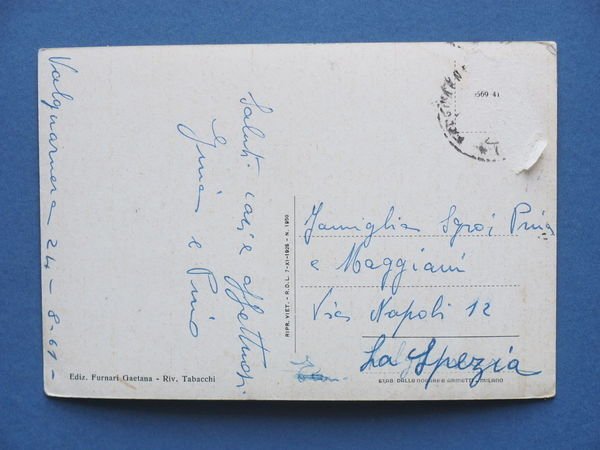 Valguarnera 24-8-61-
Saluti cari e affettuosi
Gina e Pino
RIPR. VIET. - R.D.L. 7-XI-1925 - N. 1950
569 41
Famiglia Sgroi Pino
e Maggiani
Via Napoli 12
La Spezia
Ediz. Furnari Gaetana - Riv. Tabacchi
STAB. DALLE NOGARE E ARMETTI - MILANO